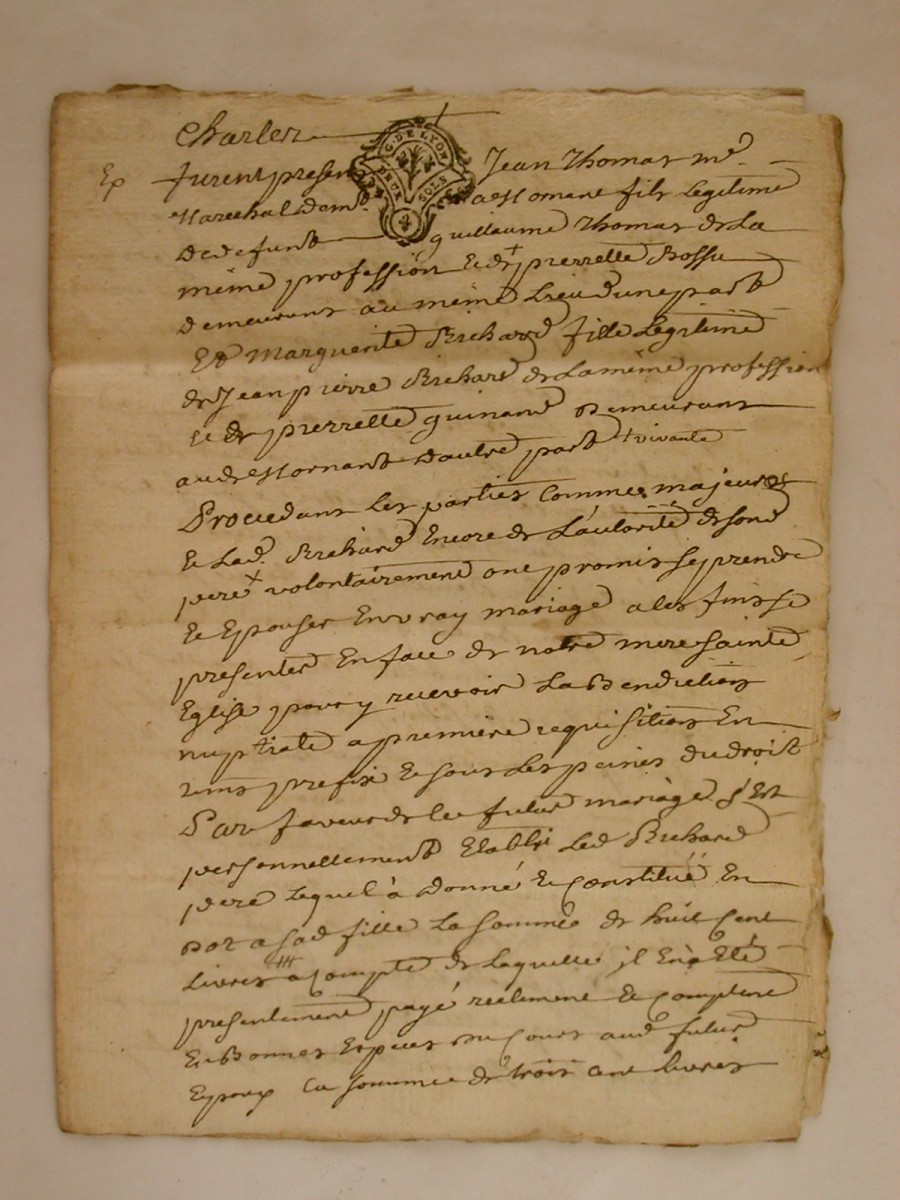 Charles
G. DE LYON
DEUX SOLS
Ex furent presents Jean Thomas me
Marechal dem.t a Mornant fils Legitime
de defunt guillaume Thomas de La
même profession et de + pierrette Bossu
demeurant au même Lieu d'une part
Et marguerite Brichard fille Legitime
de Jean pierre Brichard de La même profession
et de pierrette guinand demeurant
aud Mornant d'autre part + vivante
Procedant Les parties comme majeures
et Lad. Brichard Encore de L'autorité de son d
pere x volontairement ont promis se prendre
et Epouser En vray mariage a les fins se
presenter En face de notre mere sainte
Eglise pour y recevoir La Benediction
nuptiale a premiere requisition En
tems prefix et sous Les peines du droit
Par faveur de ce futur mariage s'est
personnellement Etabli Led Brichard
pere Lequel à donné et constitué En
dot a sad fille La somme de huit cent
Livres a compte de Laquelle il En a Eté
presentement payé reelement et comptant
En Bonnes Especes du cours aud futur
Epoux La somme de trois cent Livres